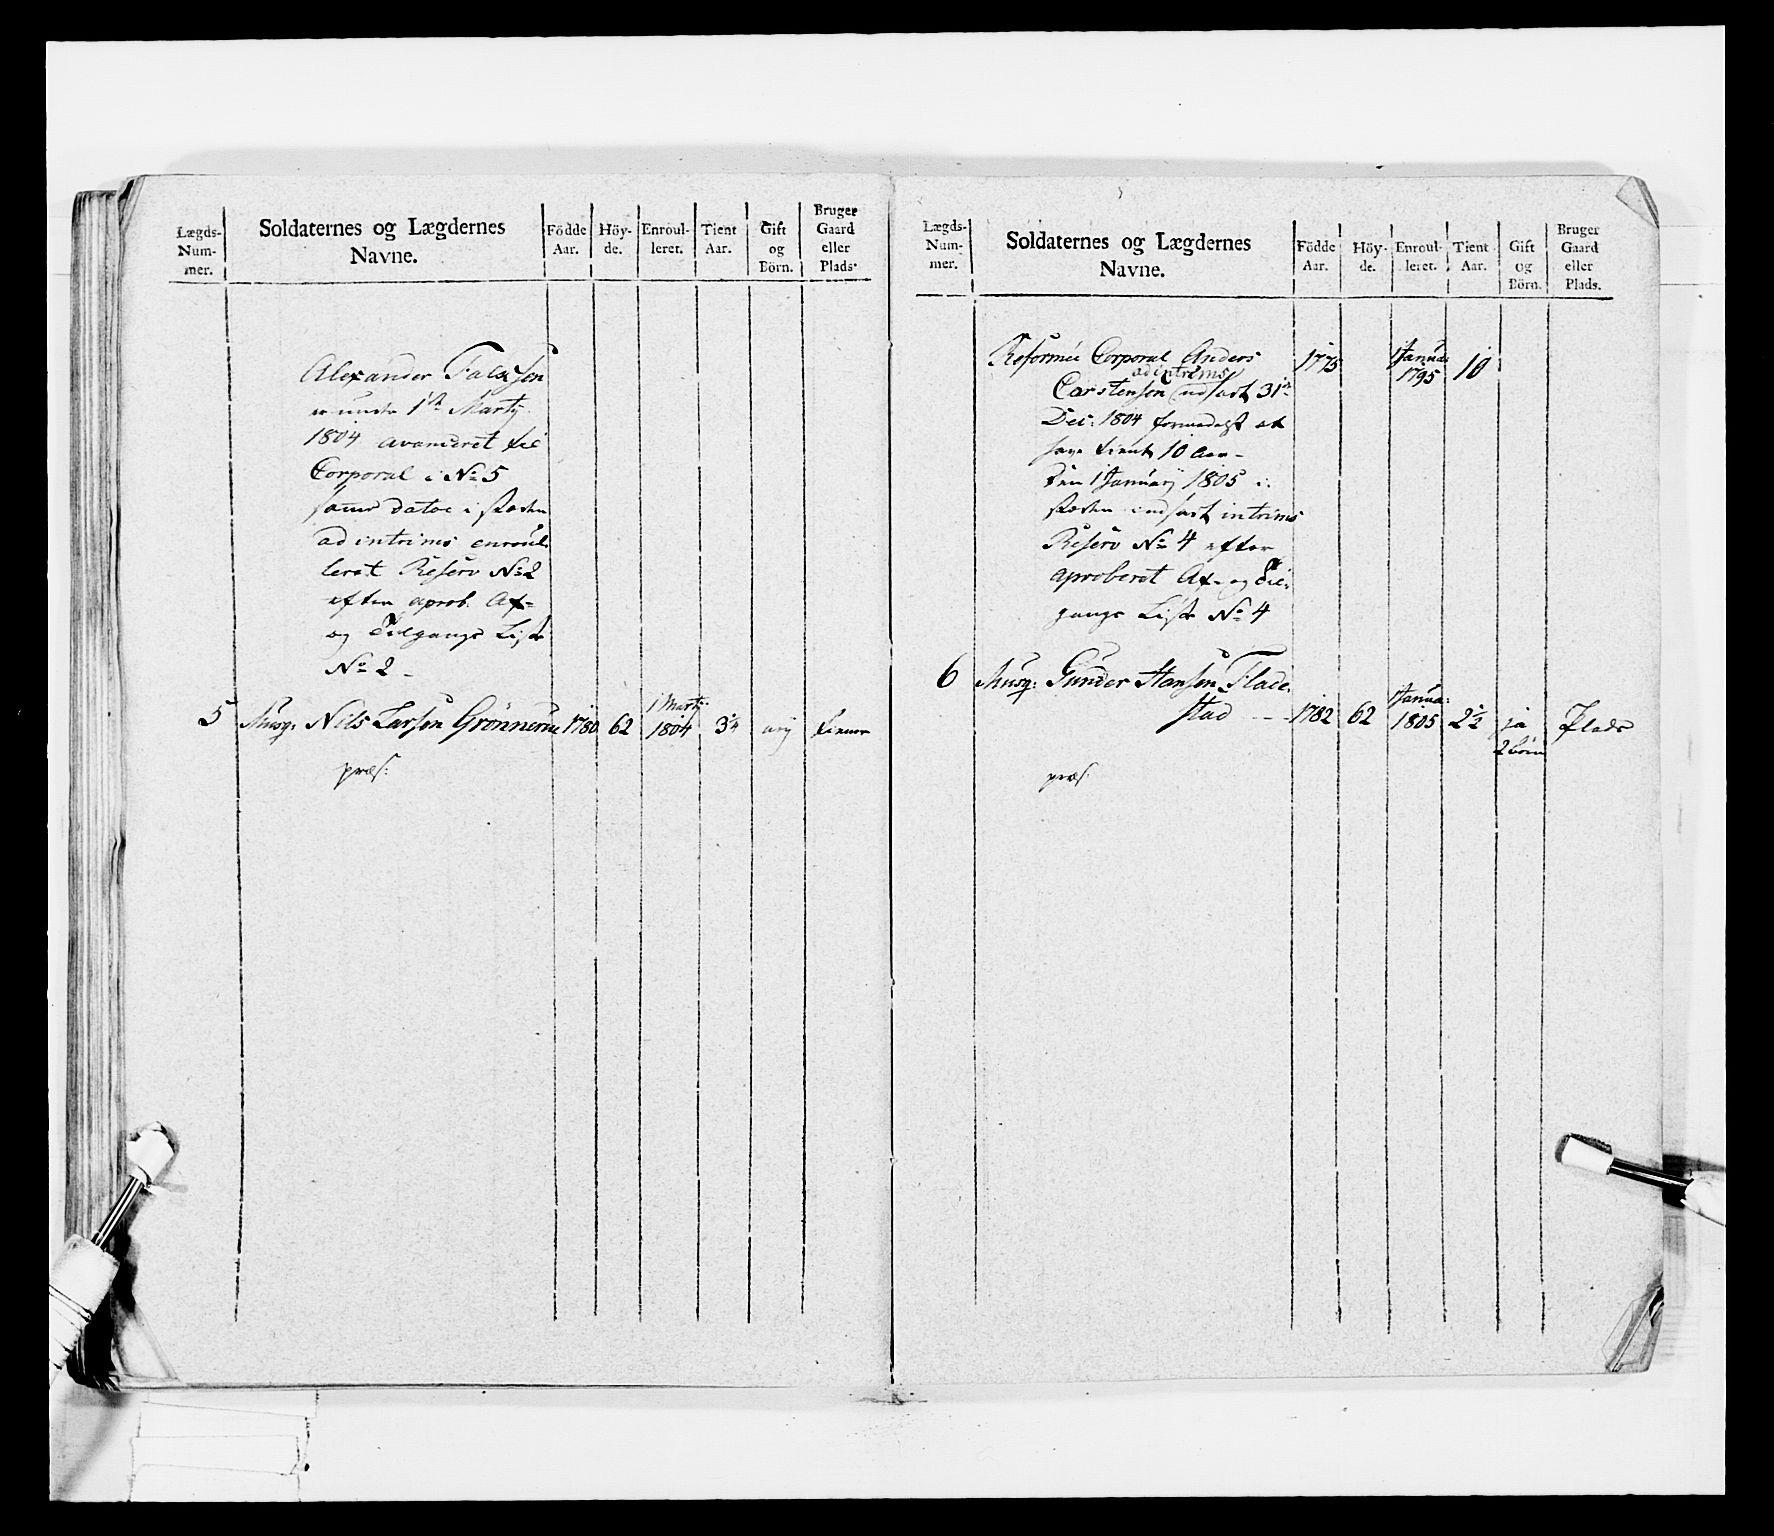 Lægds-
Num-
mer.
Soldaternes og Lægdernes
Navne.
Födde
Aar.
Höy-
de.
Enroul-
leret.
Tient
Aar.
Gift
og
Börn.
Bruger
Gaard
eller
Plads.
Alexander Falchsen
er under 1te Martÿ
1804 avanceret til
Corporal i No 5
samme datoe i stæden
ad intrims enroul-
leret Reserv No 2
efter aprob. Af-
og Tilgangs Liste
No 2 -
5 Musq: Nils Larsen Grönnerue 1780 62 1 Martÿ 1804 3¼ neÿ tiener
præs:
Lægds-
Num-
mer.
Soldaternes og Lægdernes
Navne.
Födde
Aar.
Höy-
de.
Enroul-
leret.
Tient
Aar.
Gift
og
Börn.
Bruger
Gaard
eller
Plads.
Reformée Corporal Anders 1775 1 Janua: 1795 10
ad intrims
Carstensen udsat 31te
Dec: 1804 formedelst at
have tient 10 Aar -
Den 1 Januarÿ 1805 i
stæden indsat intrims
Reserv No 4 efter
aproberet Af- og Til-
gangs Liste No 4
6 Musq: Gunder Hansen Flade-
stad - - 1782 62 1 Janua: 1805 2½ ja Plads
2 börn
præs: